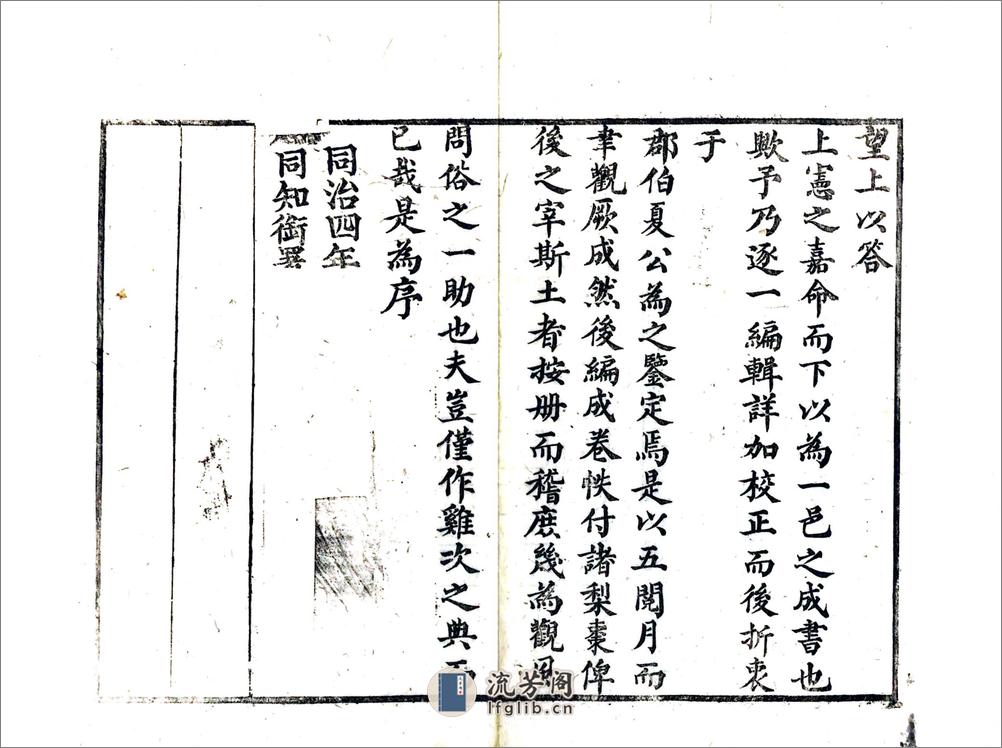 望上以答
上憲之嘉命而下以為一邑之成書也
歟予乃逐一編輯詳加校正而後折衷
于
郡伯夏公為之鑒定焉是以五閱月而
聿觀厥成然後編成卷帙付諸梨棗俾
後之宰斯土者按册而稽庶幾為觀風
問俗之一助也夫豈僅作雞次之典而
已哉是為序
同治四年
同知銜署
流芳阁
lfglib.cn